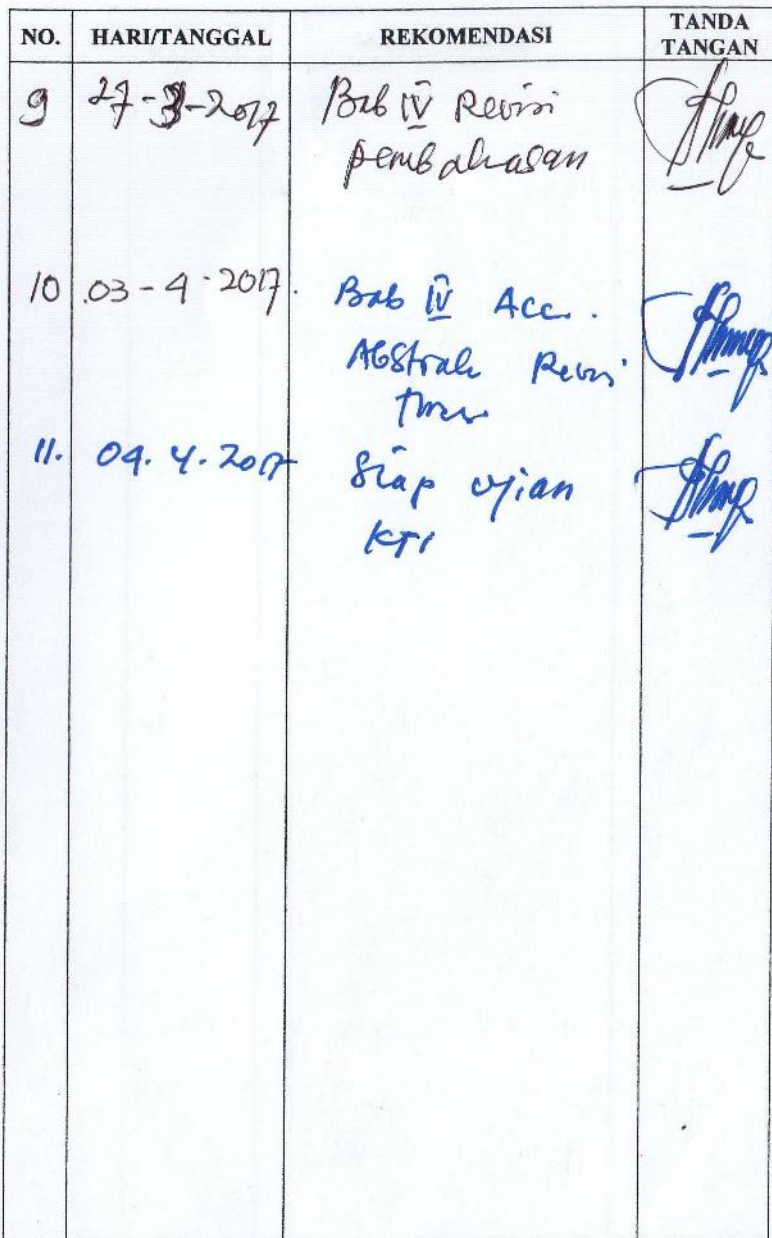 NO. HARI/TANGGAL REKOMENDASI TANDA TANGAN
9 27-3-2017 Bab IV Revisi
pembahasan
10 03-4-2017. Bab IV Acc.
Abstrak Revisi
11. 04.4.2017 Siap ujian
KTI